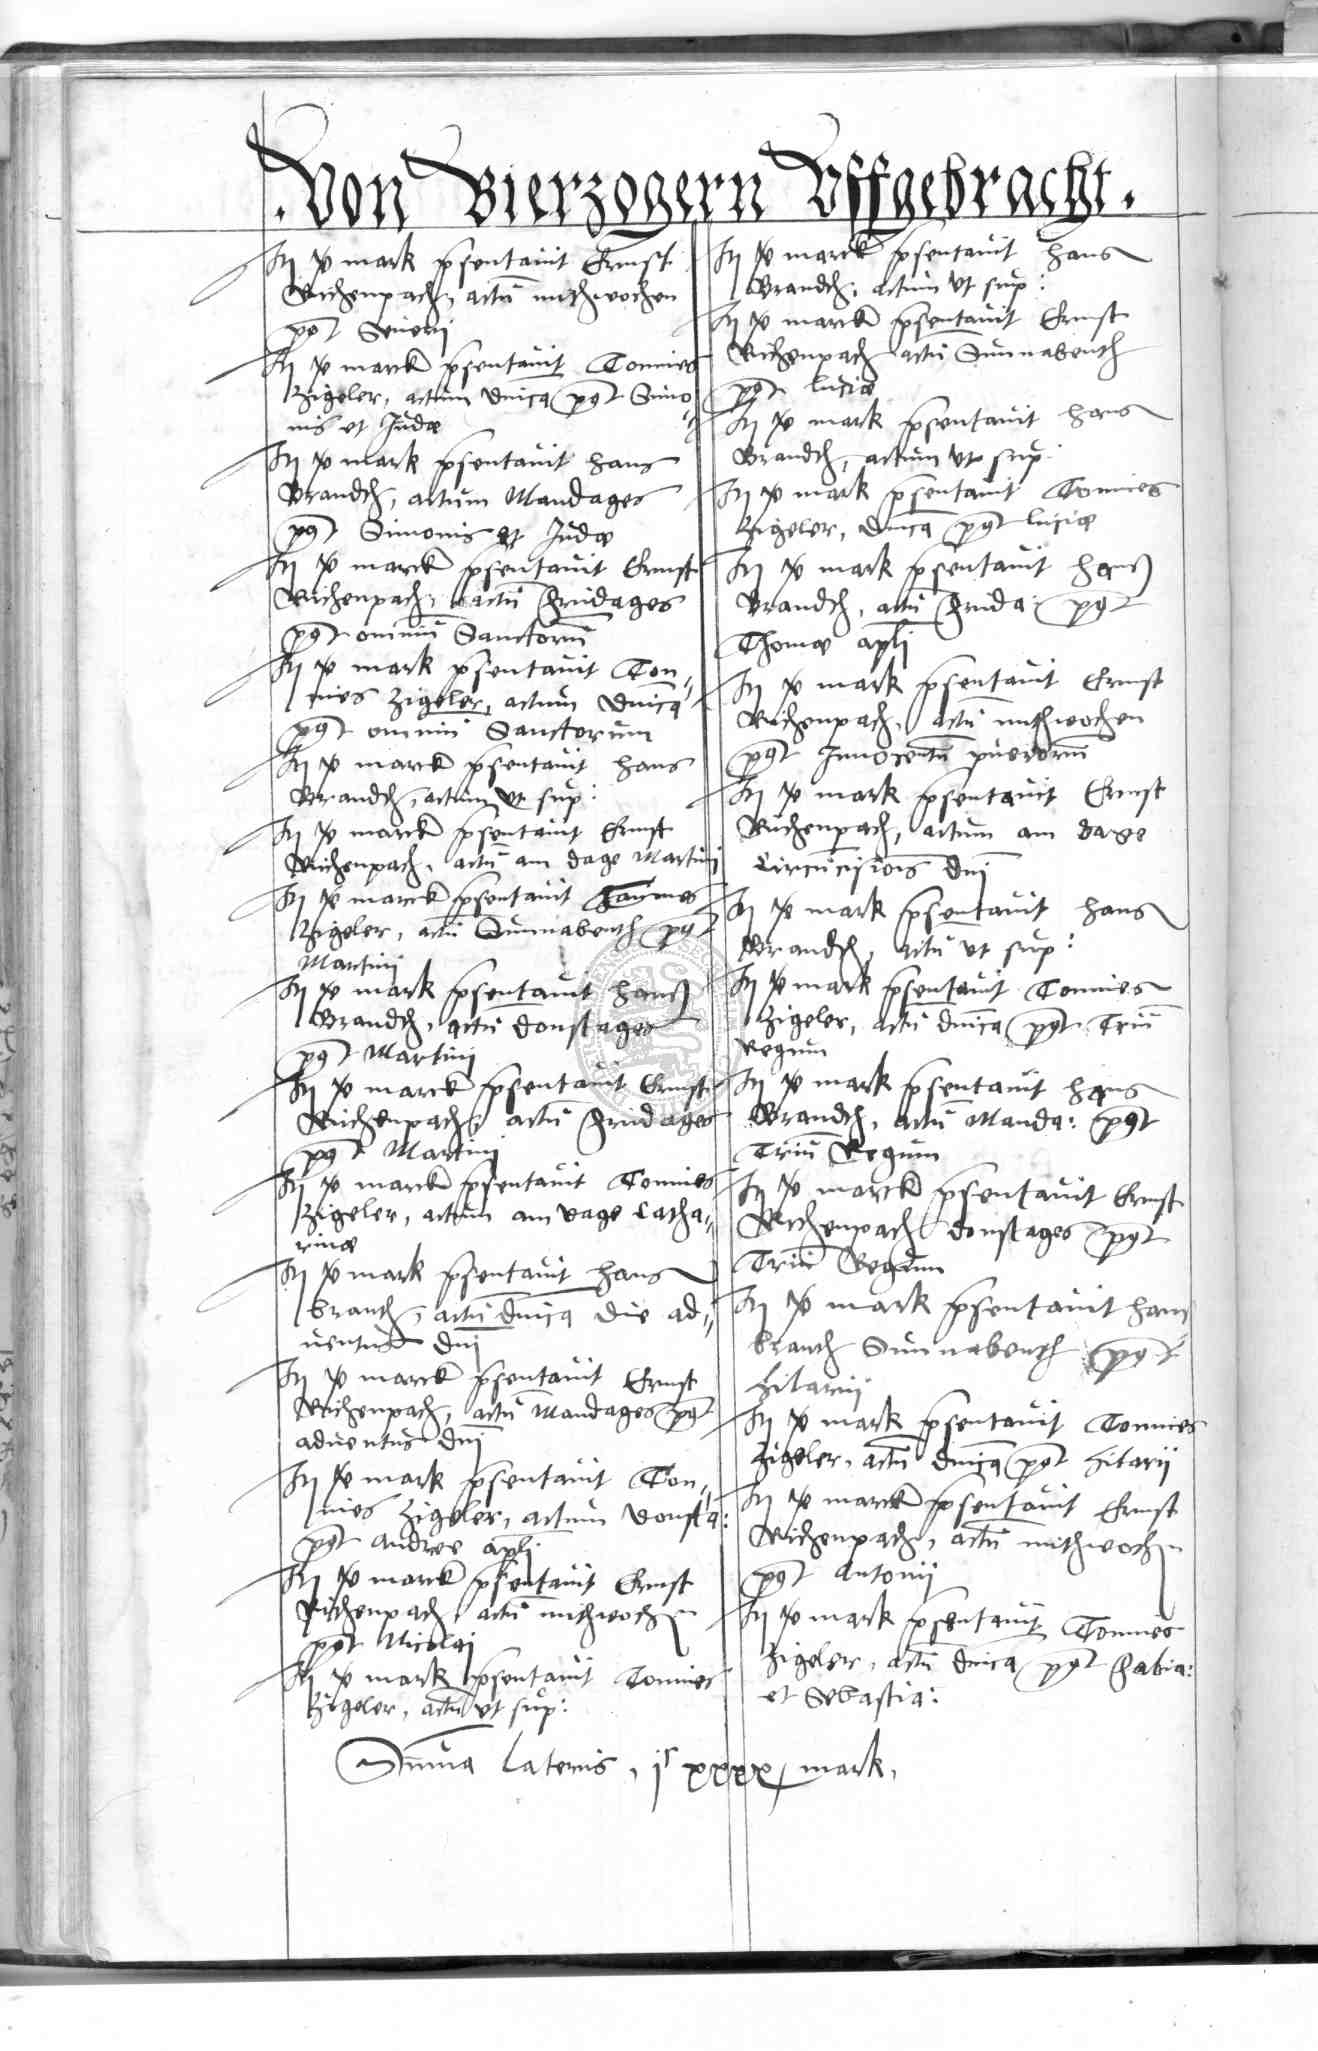 . Von Bierzogern Uffgebracht .
mark psentauit Ernst
Richenpach, actū mithwochen
post Seuerij
marck psentauit Tonnies
Zigeler, actum dnica post Simo
nis et Judæ
mark psentauit hans
Brandth, actum Mandages
post Simonis et Judæ
marck psentauit Ernst
Richenpach, actū Fridages
post omniū Sanctorū
mark psentauit Ton„
nies Zigeler, actum dnica
post omniū Sanctorum
marck psentauit hans
Brandth, actum vt sup:
marck psentauit Ernst
Richenpach, actū am dage Martini
marck psentauit Tonnies
Zigeler, actū Sunnabenth post
Martini
mark psentauit hans
Brandth, actū donstages
post Martini
marck psentauit Ernst
Richenpach, actū Fridages
post Martini
marck psentauit Tonnies
Zigeler, actum am dage Catha„
rinæ
mark psentauit hans
branth, actū dnica die ad„
uentus dnj
marck psentauit Ernst
Richenpach, actū Mandages post
aduentus dnj
mark psentauit Ton„
nies Zigeler, actum donsta:
post Andree apli
marck psentauit Ernst
Richenpach, actū mithwochn
post Nicolaj
mark psentauit Tonnies
Zigeler, actū vt sup:
marck psentauit hans
Brandth, actum vt sup:
marck psentauit Ernst
Richenpach actū Sunnabenth
post luciæ
mark psentauit hans
Brandth, actum vt sup:
mark psentauit Tonnies
Zigeler, dnica post luciæ
mark psentauit hans
Brandth, actū Frida: post
Thomæ apli
mark psentauit Ernst
Richenpach, actū mithwochen
post Innocentū puerorū
mark psentauit Ernst
Richenpach, actum am dage
Circūcisionis dnj
mark psentauit hans
Brandth, actū vt sup:
mark psentauit Tonnies
Zigeler, actū dnica post Triū
Regum
mark psentauit hans
Brandth, actū Manda: post
Triū Regum
marck psentauit Ernst
Richenpach donstages post
Triū Regum
mark psentauit hans
branth Sunnabenth post
Hilarij
mark psentauit Tonnies
Zigeler, actū dnica post Hilarij
marck psentauit Ernst
Richenpach, actū mithwochn
post Antonij
mark psentauit Tonnies
Zigeler, actū dnica post Fabia:
et Sebastia:
Suma lateris, jc xxxx mark,